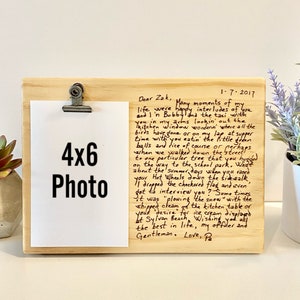 1-7-2017
Dear Zak,
Many moments of my
life were happy interludes of you
and I in Bubby and the taxi with
you in my arms lookin' out the
kitchen window wondrin' where all the
birds have gone or on my lap at supper
time with you eatin' the little green
balls and rice of course or perhaps
when we walked down the street
to one particular tree that you
on the way to the school park. What
about the summer days when you raced
your Hot Wheels down the sidewalk
I dropped the checkered flag and even
got to interview you? Some times
it was "plowing the snow" with the
whipped cream on the kitchen table or
your desire for ice cream
at Sylvan Beach. Wishing you all
the best in life, my officer and
Gentleman. Love,
4x6
Photo